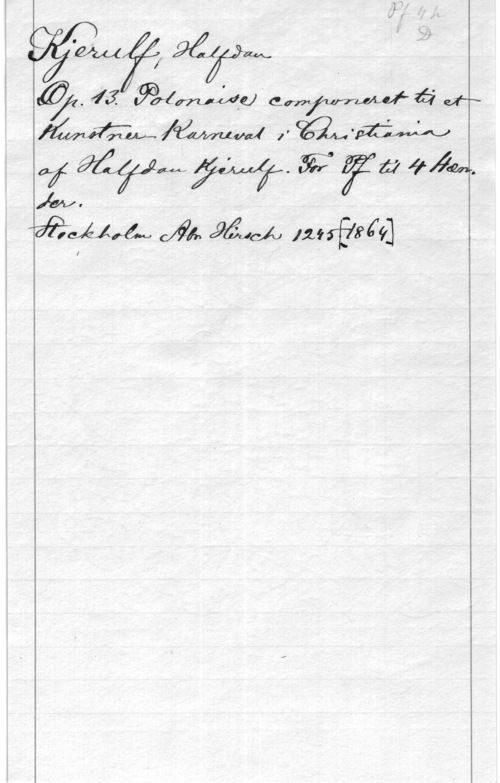 Pf 4 h
D
Kjerulf, Halfdan
Op. 13. Polonaise componeret til et
Kunstner-Karneval i Christiania
af Halfdan Kjerulf. For Pf til 4 Hæn-
der.
Stockholm Abr Hirsch 1245 [1864]